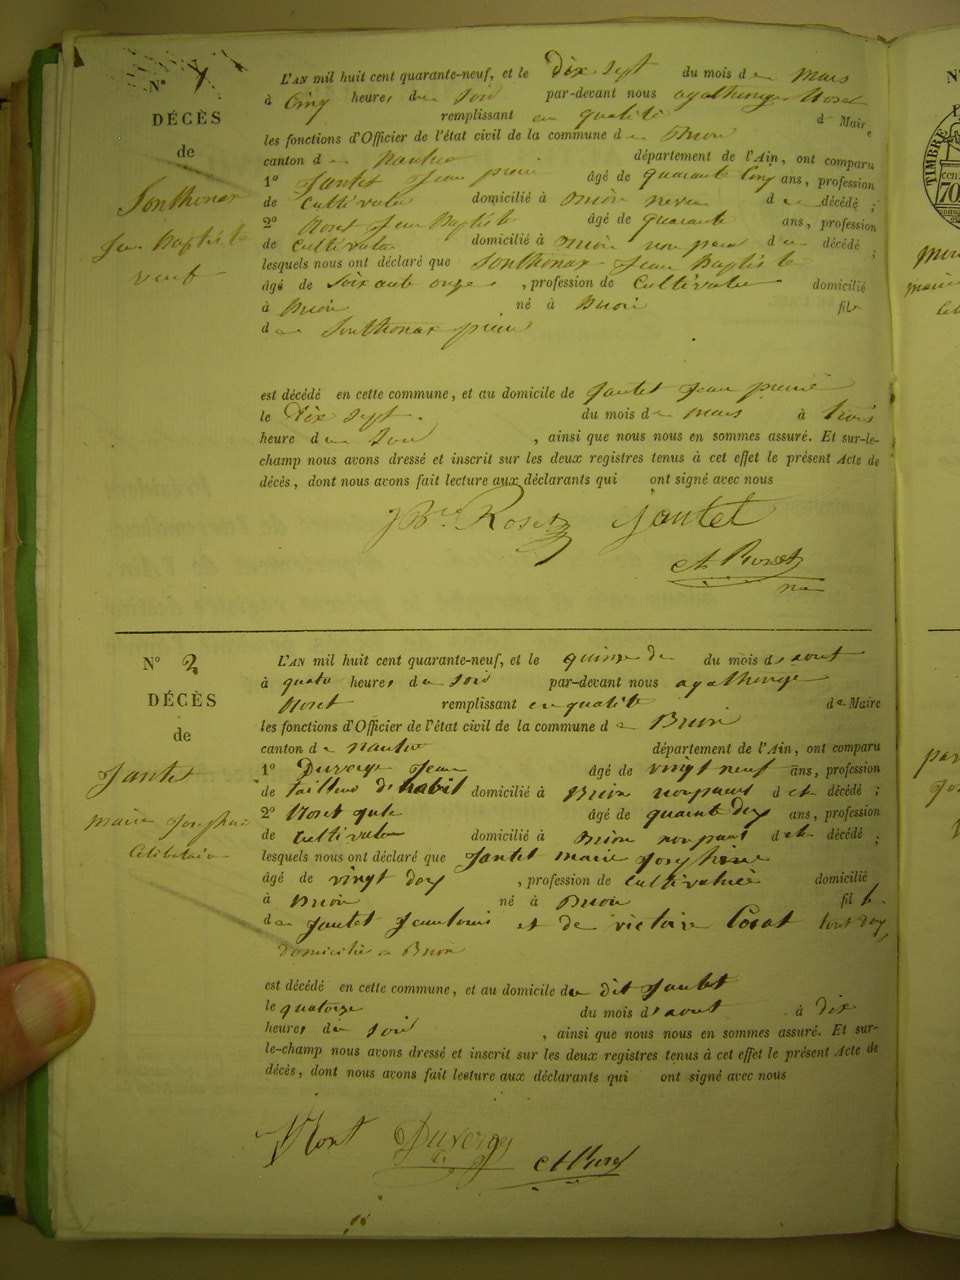 N° 1
DÉCÈS
de
Sonthonax
Jean Baptiste
veuf
L'AN mil huit cent quarante-neuf, et le dix sept du mois de mars
à cinq heures du soir par-devant nous agathenge Roset
remplissant en qualité de Maire
les fonctions d'Officier de l'état civil de la commune de Brion
canton de Nantua département de l'Ain, ont comparu
1° Jantet Jean pierre âgé de quarante cinq ans, profession
de cultivateur domicilié à Brion neveu du décédé ;
2° Roset Jean Baptiste âgé de quarante ans, profession
de cultivateur domicilié à Brion non parent du décédé ;
lesquels nous ont déclaré que Sonthonax Jean Baptiste
âgé de soixante onze , profession de cultivateur domicilié
à Brion né à Brion fils
de Sonthonax pierre
est décédé en cette commune, et au domicile de Jantet Jean pierre
le dix sept du mois de mars à trois
heure du soir , ainsi que nous nous en sommes assuré. Et sur-le-
champ nous avons dressé et inscrit sur les deux registres tenus à cet effet le présent Acte de
décès, dont nous avons fait lecture aux déclarants qui ont signé avec nous
JBte Roset Jantet
A Roset
N° 2
DÉCÈS
de
Jantet
marie Josephine
Célibataire
L'AN mil huit cent quarante-neuf, et le quinze du mois d'aout
à quatre heures du soir par-devant nous agathenge
Roset remplissant en qualité de Maire
les fonctions d'Officier de l'état civil de la commune de Brion
canton de Nantua département de l'Ain, ont comparu
1° Duverge Jean âgé de vingt neuf ans, profession
de tailleur d'habit domicilié à Brion non parent de décédé ;
2° Roset âgé de quarante dex ans, profession
de cultivateur domicilié à Brion non parent de décédé ;
lesquels nous ont déclaré que Jantet marie Josephine
âgé de vingt dex , profession de cultivatrice domicilié
à Brion né à Brion fille
de Jantet Jean louis et de victoire tout dex
domicilié a Brion
est décédé en cette commune, et au domicile du dit Jantet
le quatorze du mois d'aout à dix
heures du soir , ainsi que nous nous en sommes assuré. Et sur-
le-champ nous avons dressé et inscrit sur les deux registres tenus à cet effet le présent Acte de
décès, dont nous avons fait lecture aux déclarants qui ont signé avec nous
Roset Duverge A Roset